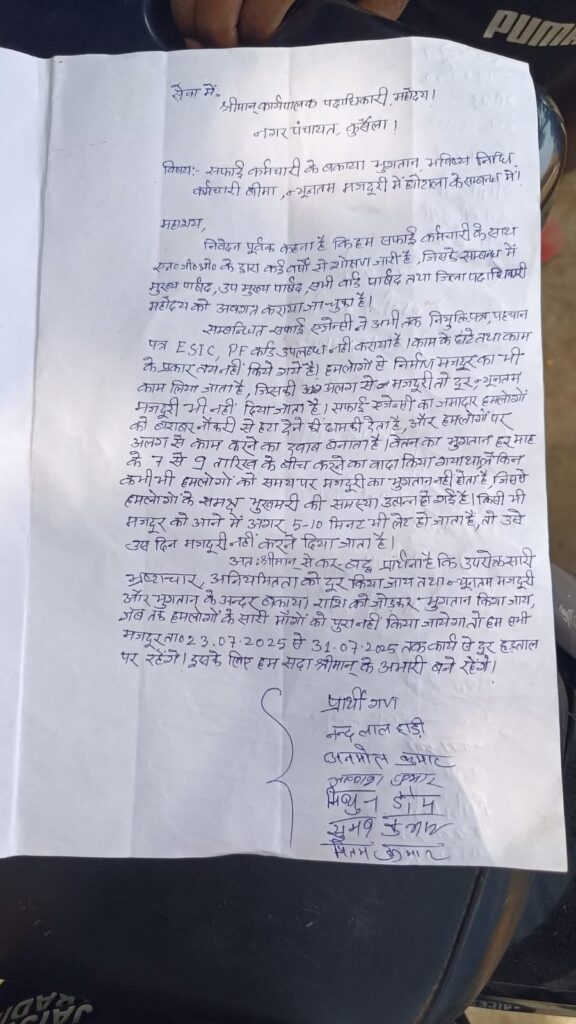 सेवा में,
श्रीमान् कार्यपालक पदाधिकारी, महोदय।
नगर पंचायत, कुर्सेला।
विषय:- सफाई कर्मचारी के बकाया भुगतान, भविष्य निधि,
कर्मचारी बीमा, न्यूनतम मजदूरी में घोटाला के सम्बन्ध में।
महाशय,
निवेदन पूर्वक कहना है कि हम सफाई कर्मचारी के साथ
एन०जी०ओ० के द्वारा कई वर्षों से शोषण जारी है, जिसके सम्बन्ध में
मुख्य पार्षद, उप मुख्य पार्षद, सभी वार्ड पार्षद तथा जिला पदाधिकारी
महोदय को अवगत कराया जा चुका है।
सम्बन्धित सफाई एजेन्सी ने अभी तक नियुक्ति पत्र, पहचान
पत्र ESIC, PF कार्ड उपलब्ध नहीं कराया है। काम के घंटे तथा काम
के प्रकार तय नहीं किये गये है। हमलोगों से निर्माण मजदूर का भी
काम लिया जाता है, जिसकी अलग से मजदूरी तो दूर न्यूनतम
मजदूरी भी नहीं दिया जाता है। सफाई एजेन्सी का जमादार हमलोगों
को बराबर नौकरी से हटा देने की धमकी देता है, और हमलोगों पर
अलग से काम करने का दबाव बनाता है। वेतन का भुगतान हर माह
के 7 से 9 तारिख के बीच करने का वादा किया गया था लेकिन
कभी भी हमलोगों को समय पर मजदूरी का भुगतान नहीं होता है, जिससे
हमलोगों के समक्ष भुखमरी की समस्या उत्पन्न हो गई है। किसी भी
मजदूर को आने में अगर 5-10 मिनट भी लेट हो जाता है, तो उसे
उस दिन मजदूरी नहीं करने दिया जाता है।
अत: श्रीमान् से कर-बद्ध प्रार्थना है कि उपरोक्त सारी
भ्रष्टाचार, अनियमितता को दूर किया जाय तथा न्यूनतम मजदूरी
और भुगतान के अन्दर बकाया राशि को जोड़कर भुगतान किया जाय,
जब तक हमलोगों के सारी माँगों को पुरा नहीं किया जायेगा तो हम सभी
मजदूर ता० 23.07.2025 से 31.07.2025 तक कार्य से दूर हड़ताल
पर रहेंगे। इसके लिए हम सदा श्रीमान् के अभारी बने रहेंगे।
प्रार्थी गण
नन्द लाल हाड़ी
अनमोल कुमार
आकाश कुमार
मिथुन डोम
सुमन कुमार
प्रितम कुमार
PUMA